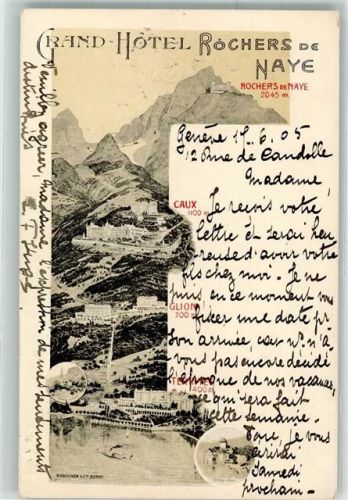 GRAND-HÔTEL ROCHERS DE NAYE
ROCHERS DE NAYE
2045 m.
Genève 15.6.05
12 Rue de Candolle
Madame,
CAUX
1100 m.
Je reçois votre
lettre et serai heu
reuse d'avoir votre
fils chez moi. Je ne
GLION
700 m.
puis en ce moment vous
fixer une date pr
son arrivée car n'a
vous pas encore décidé
l'époque de nos vacances,
TERRITET
400 m.
ce qui sera fait
cette semaine.
Donc, je vous
écrirai
Samedi
prochain.
Veuillez agréer, madame l'expression de mes sentiments
distingués